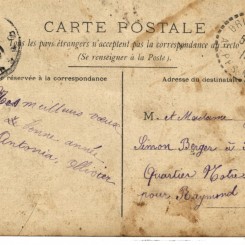 CARTE POSTALE
Tous les pays étrangers n'acceptent pas la correspondance au recto
(Se renseigner à la Poste).
réservée à la correspondance
Adresse du destinataire
Nos meilleurs vœux
de bonne année
Antonia, Ollivier
M. et Madame
Simon Berger
Quartier Notre
pour Raymond